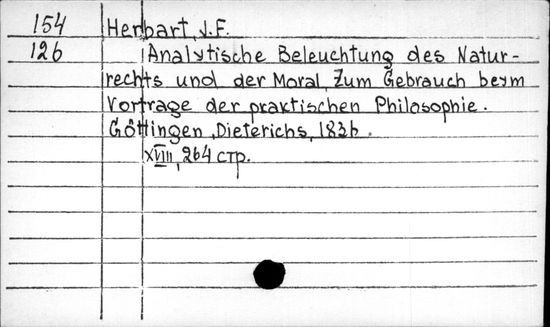 154 Herbart, J.F.
126 Analytische Beleuchtung des Natur-
rechts und der Moral, Zum Gebrauch beym
Vortrage der praktischen Philosophie.
Göttingen, Dieterichs, 1836.
XVIII, 264 стр.